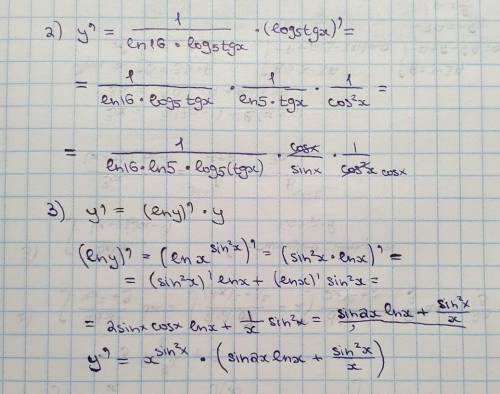 2) y' = 1/(ln16 · log₅tgx) · (log₅tgx)' =
= 1/(ln16 · log₅tgx) · 1/(ln5 · tgx) · 1/cos²x =
= 1/(ln16 · ln5 · log₅(tgx)) · cosx/sinx · 1/cos²x cosx
3) y' = (lny)' · y
(lny)' = (lnx^(sin²x))' = (sin²x · lnx)' =
= (sin²x)' lnx + (lnx)' sin²x =
= 2sinx cosx lnx + 1/x sin²x = sin2x lnx + sin²x/x
y' = x^(sin²x) · (sin2x lnx + sin²x/x)